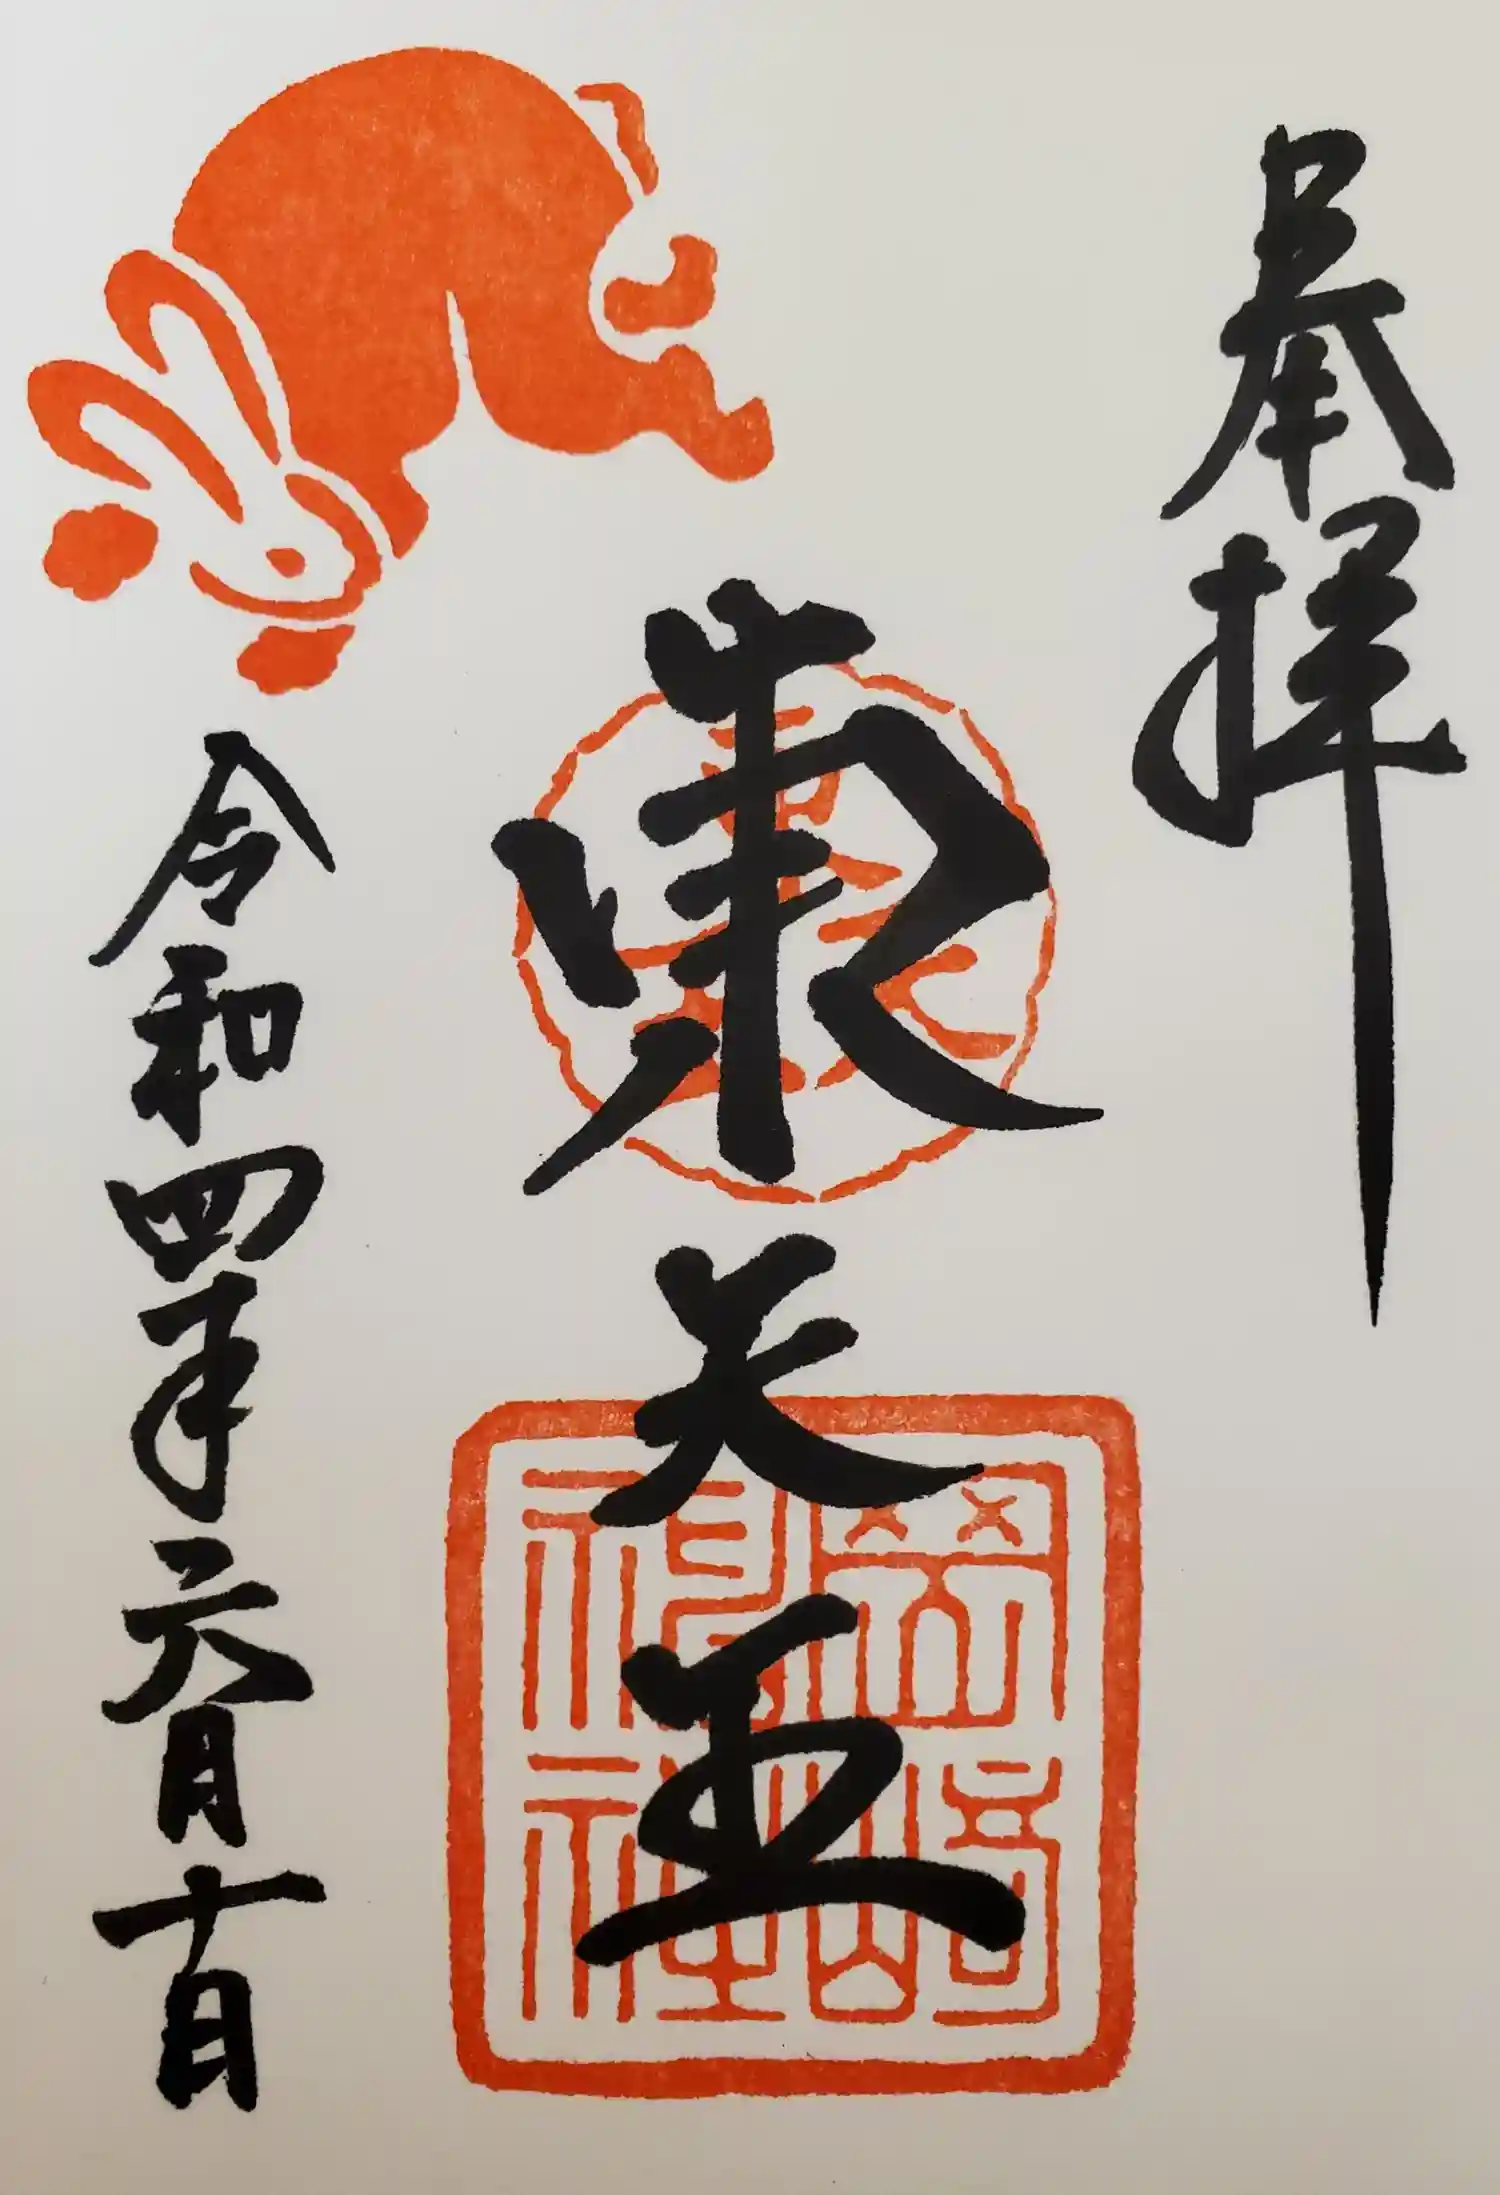 奉拝
東天王
岡﨑神社
令和四年六月十日